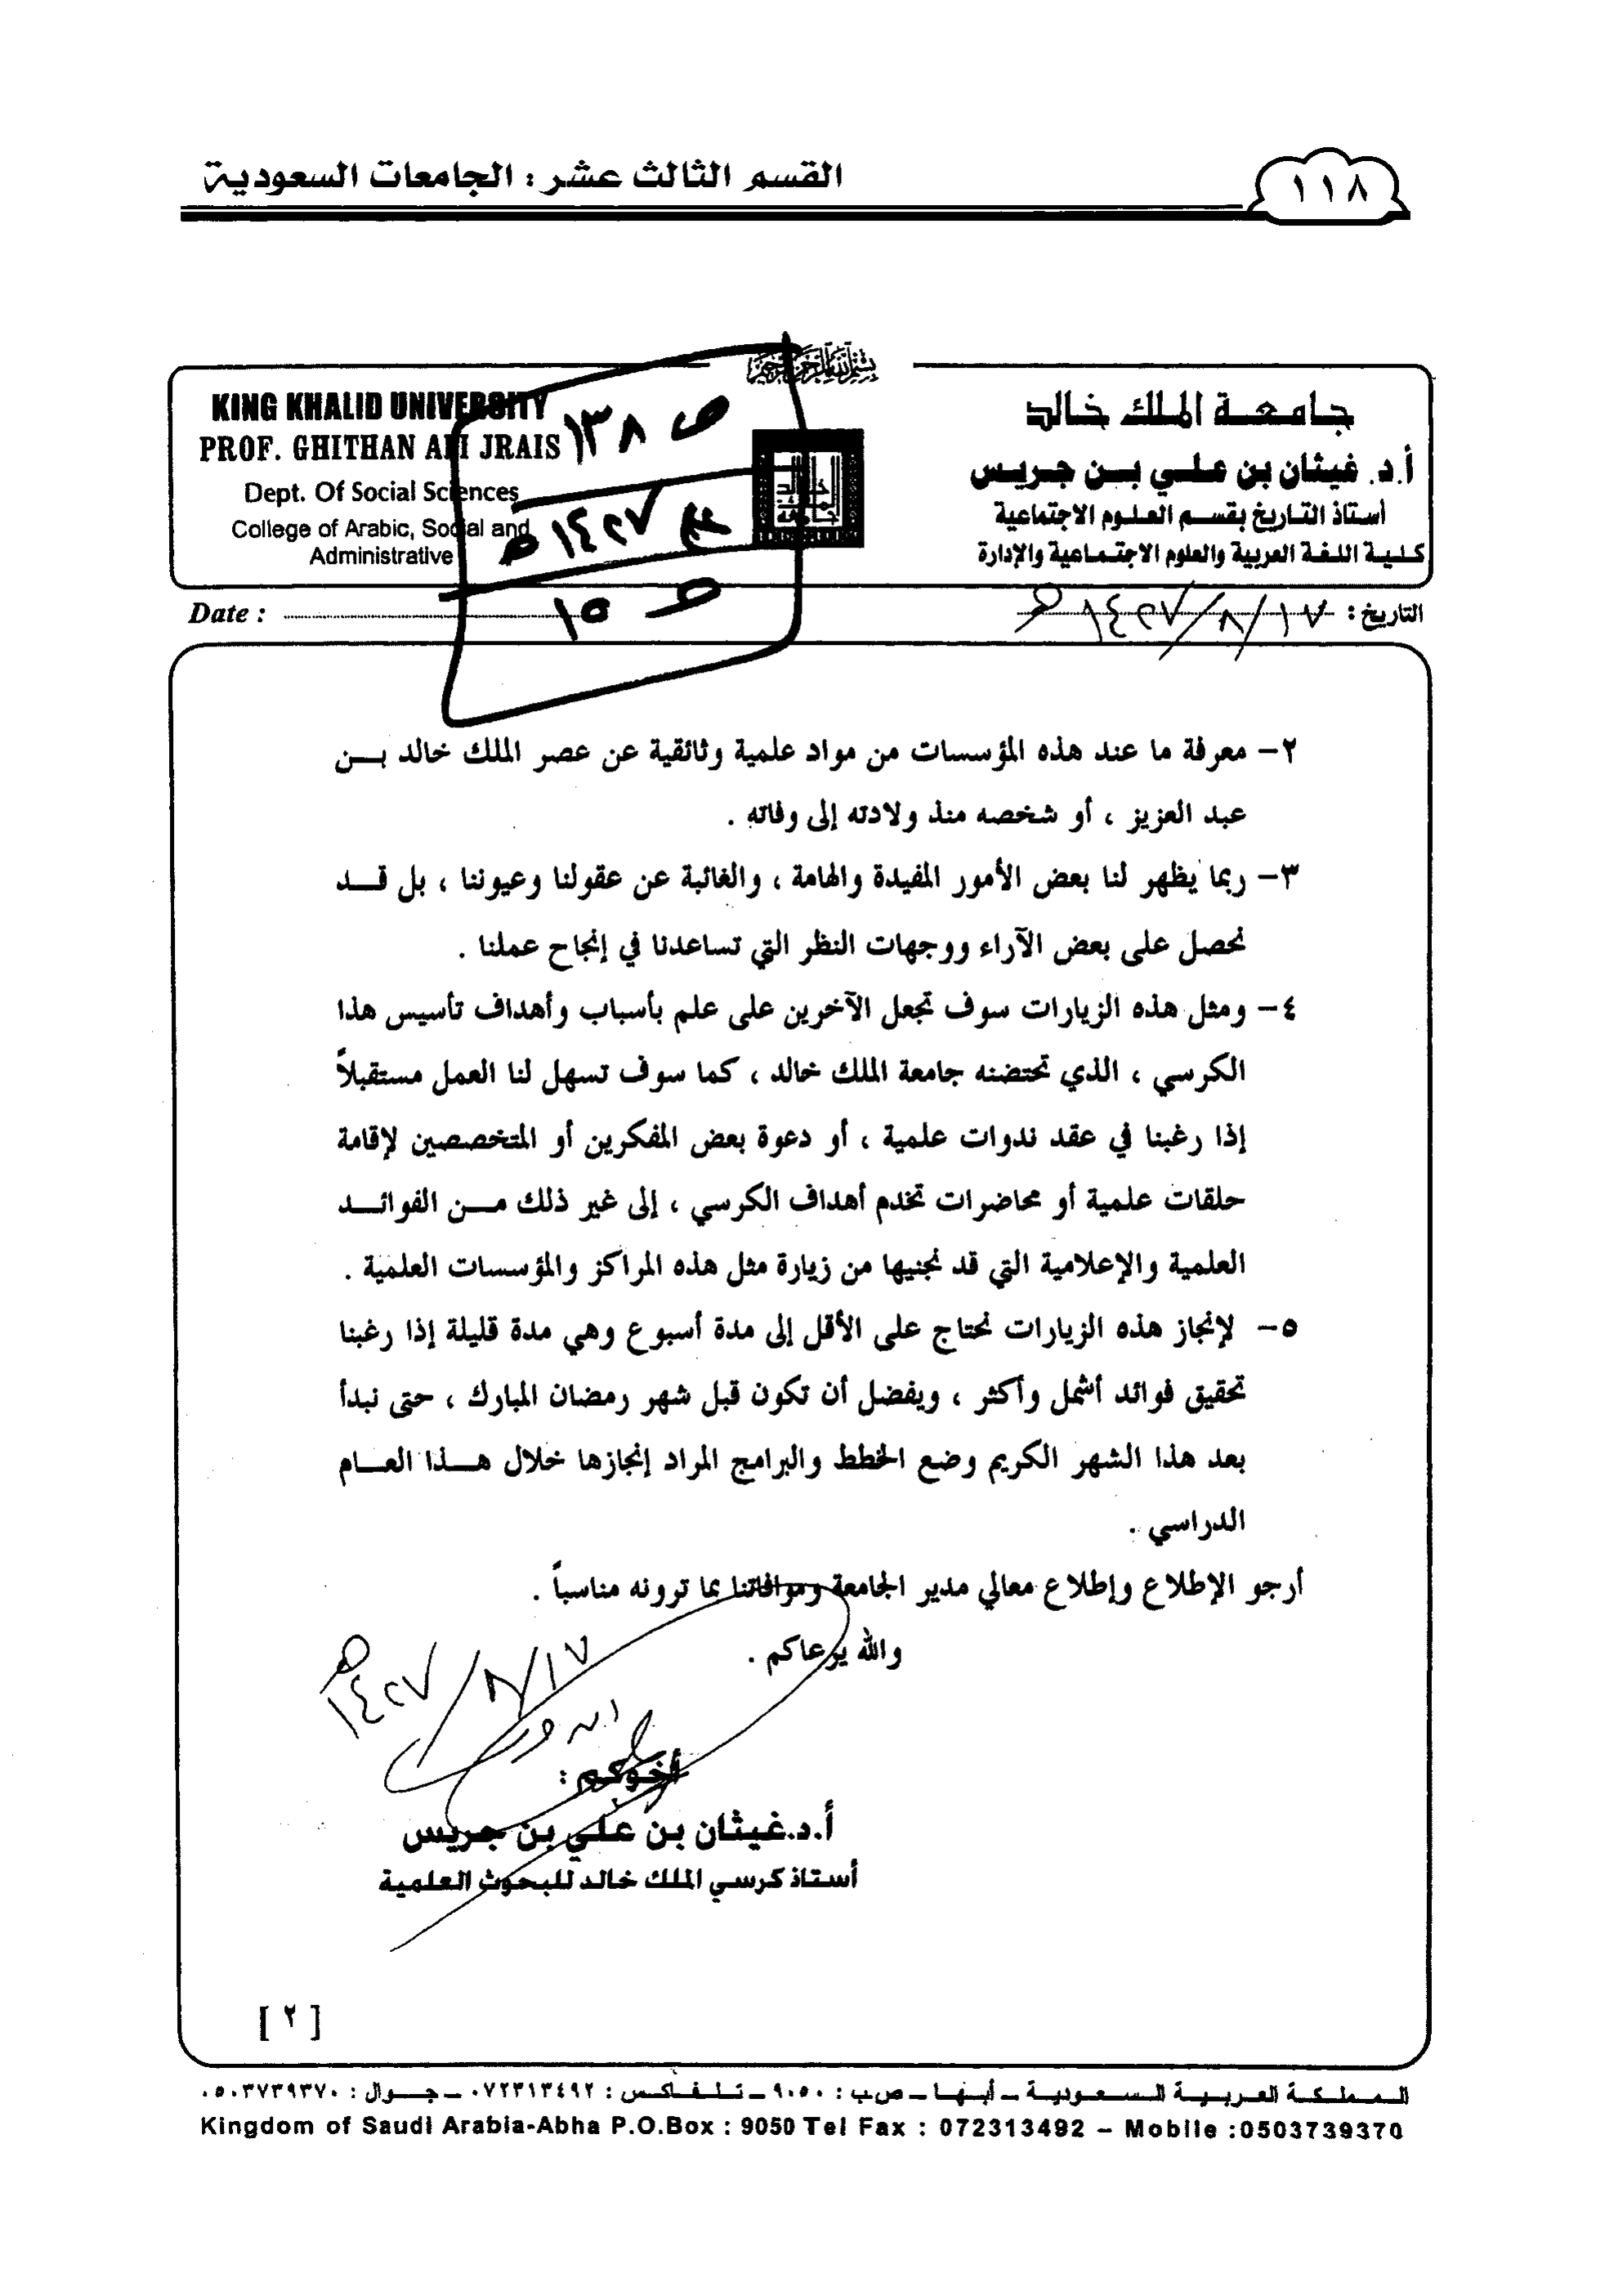 ١١٨
القسم الثالث عشر : الجامعات السعودية
بسم الله الرحمن الرحيم
جامعة الملك خالد
أ.د. غيثان بن علي بن جريس
أستاذ التاريخ بقسم العلوم الاجتماعية
كلية اللغة العربية والعلوم الاجتماعية والإدارة
KING KHALID UNIVERSITY
PROF. GHITHAN ALI JRAIS
Dept. Of Social Sciences
College of Arabic, Social and
Administrative
ص ١٣٨
١٤٢٧ هـ
ص ١٥
التاريخ : ١٧/٨/١٤٢٧هـ
Date :
٢- معرفة ما عند هذه المؤسسات من مواد علمية وثائقية عن عصر الملك خالد بن
عبد العزيز ، أو شخصه منذ ولادته إلى وفاته .
٣- ربما يظهر لنا بعض الأمور المفيدة والهامة ، والغائبة عن عقولنا وعيوننا ، بل قد
نحصل على بعض الآراء ووجهات النظر التي تساعدنا في إنجاح عملنا .
٤- ومثل هذه الزيارات سوف تجعل الآخرين على علم بأسباب وأهداف تأسيس هذا
الكرسي ، الذي تحتضنه جامعة الملك خالد ، كما سوف تسهل لنا العمل مستقبلاً
إذا رغبنا في عقد ندوات علمية ، أو دعوة بعض المفكرين أو المتخصصين لإقامة
حلقات علمية أو محاضرات تخدم أهداف الكرسي ، إلى غير ذلك من الفوائد
العلمية والإعلامية التي قد نجنيها من زيارة مثل هذه المراكز والمؤسسات العلمية .
٥- لإنجاز هذه الزيارات نحتاج على الأقل إلى مدة أسبوع وهي مدة قليلة إذا رغبنا
تحقيق فوائد أشمل وأكثر ، ويفضل أن تكون قبل شهر رمضان المبارك ، حتى نبدأ
بعد هذا الشهر الكريم وضع الخطط والبرامج المراد إنجازها خلال هذا العام
الدراسي .
أرجو الإطلاع وإطلاع معالي مدير الجامعة وموافاتنا بما ترونه مناسباً .
والله يرعاكم .
١٧/٨/١٤٢٧هـ
أخوكم :
أ.د.غيثان بن علي بن جريس
أستاذ كرسي الملك خالد للبحوث العلمية
[ ٢ ]
المملكة العربية السعودية – أبها – ص.ب : ٩٠٥٠ – تلفاكس : ٠٧٢٣١٣٤٩٢ – جوال : ٠٥٠٣٧٣٩٣٧٠
Kingdom of Saudi Arabia-Abha P.O.Box : 9050 Tel Fax : 072313492 – Mobile :0503739370